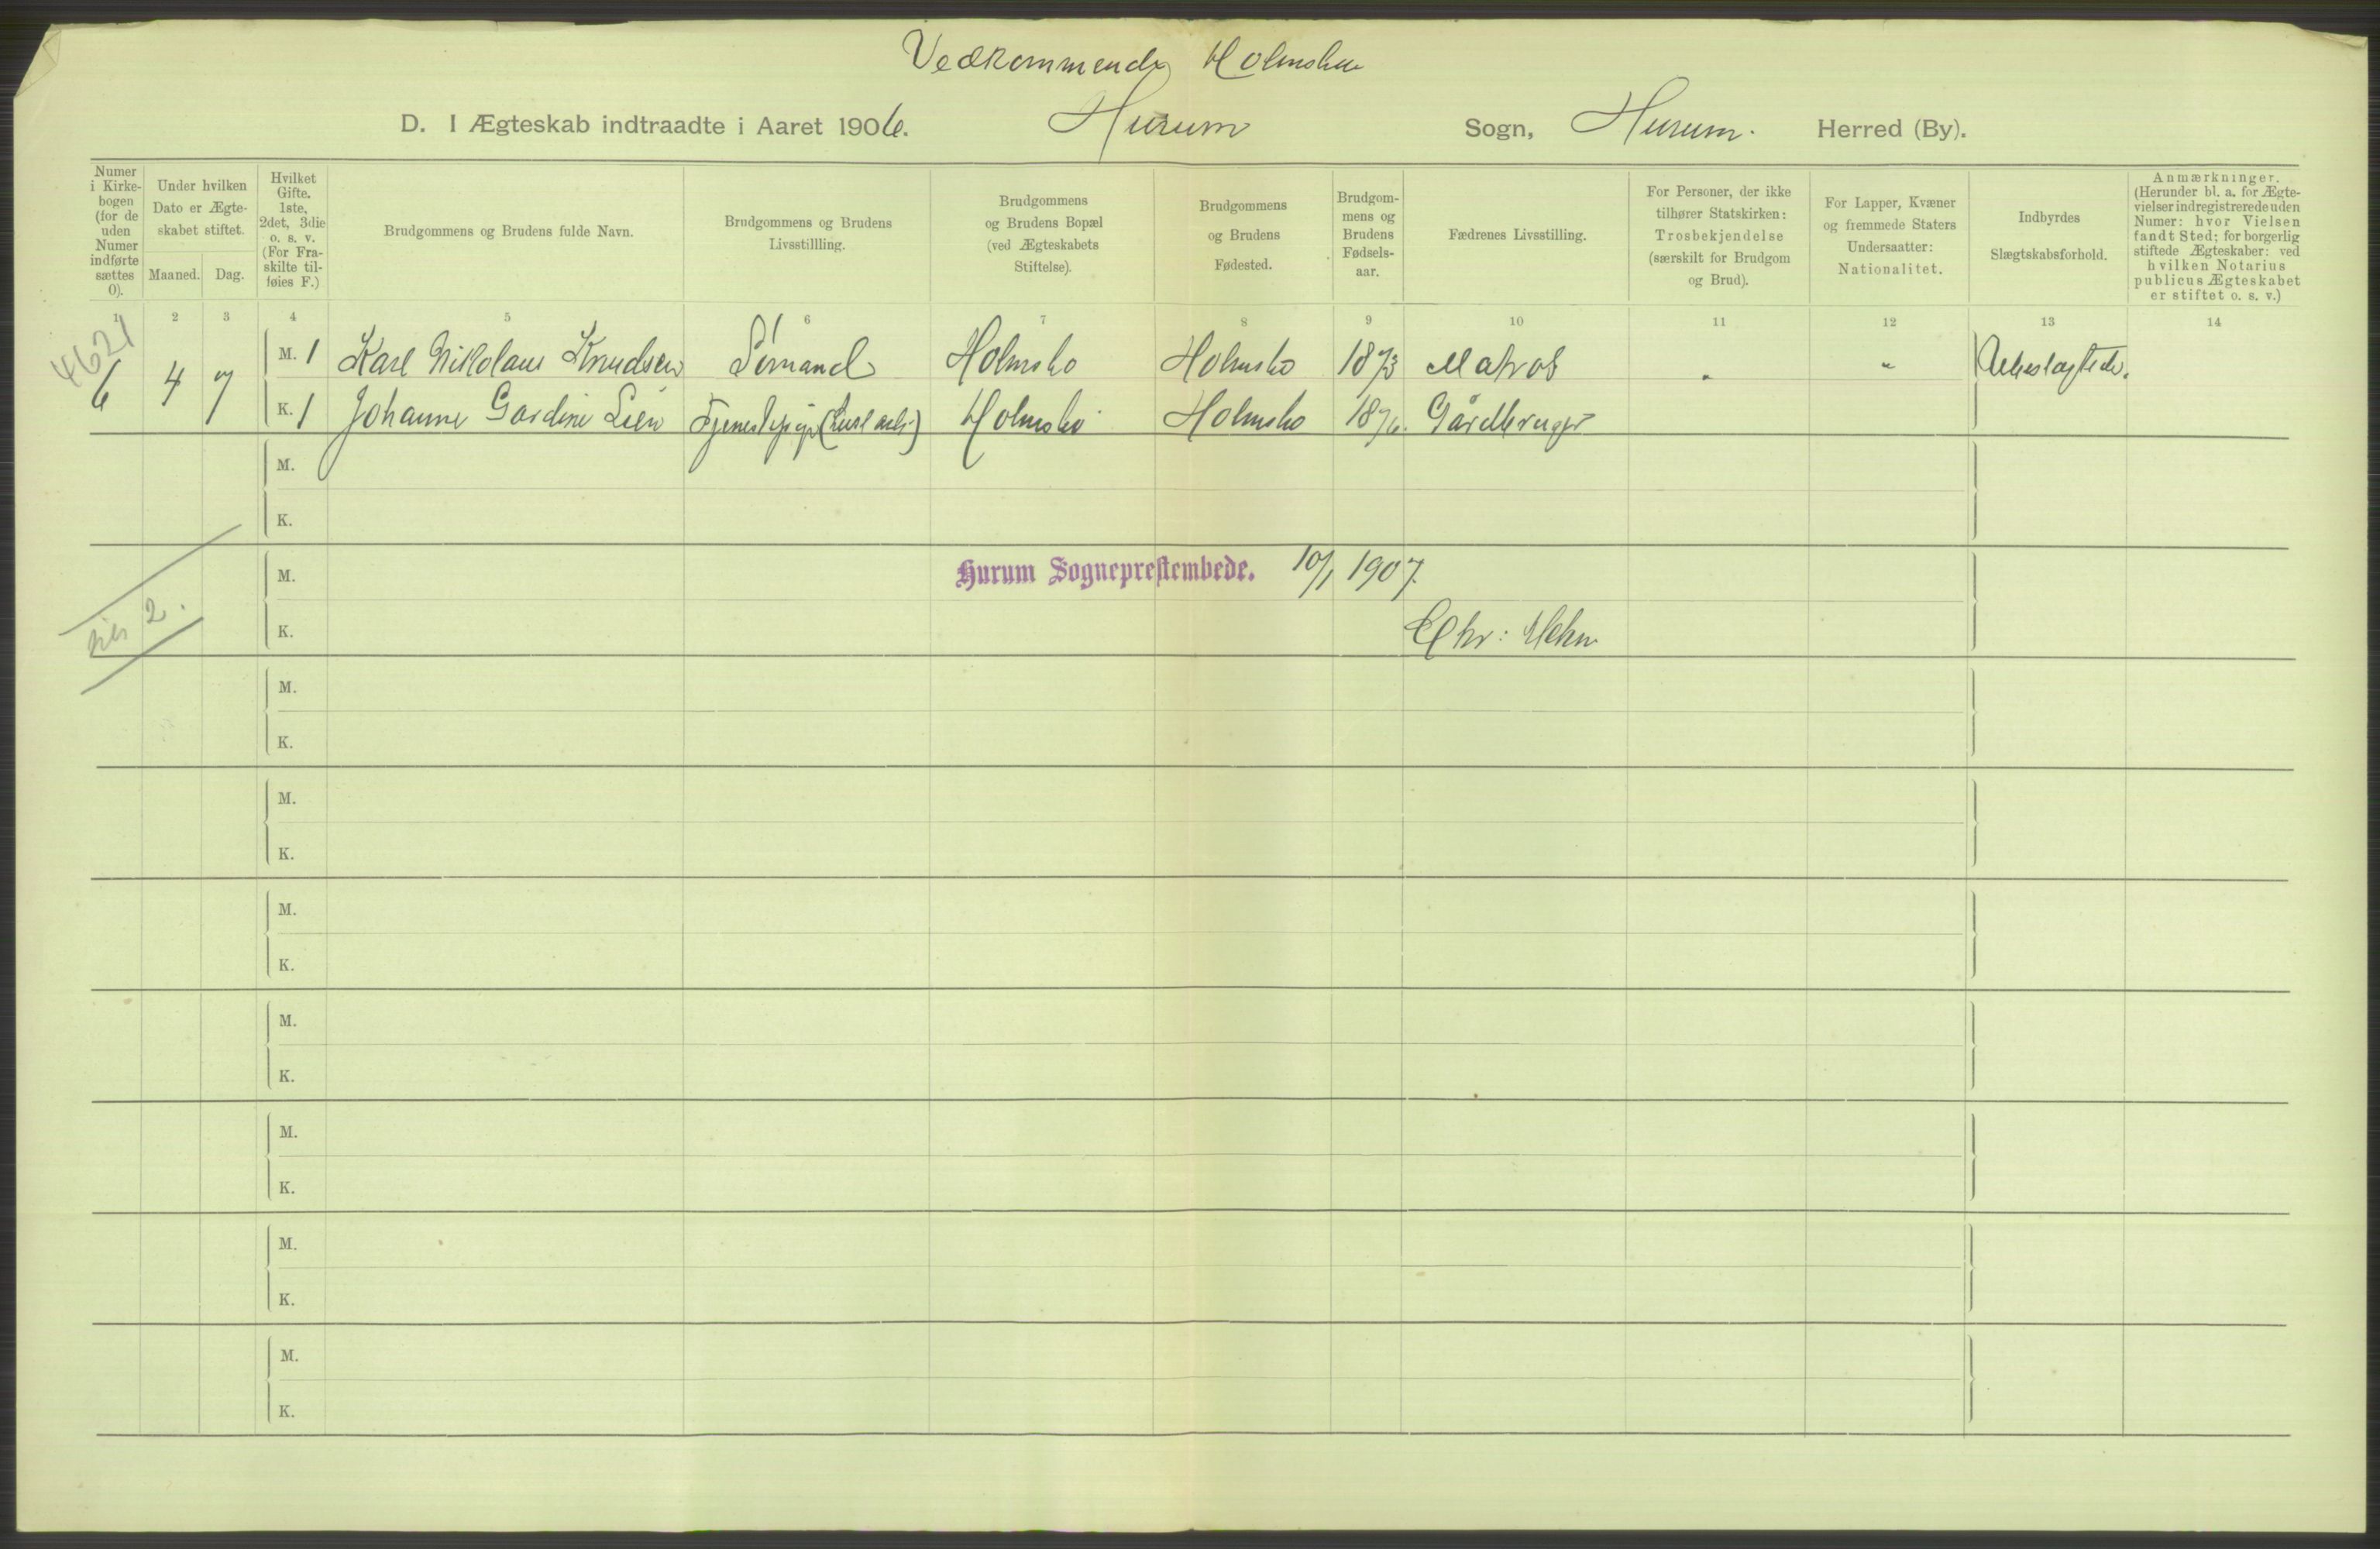 Vedkommende Holmsbu
D. I Ægteskab indtraadte i Aaret 1906. Hurum Sogn, Hurum. Herred (By).
Numer i Kirkebogen (for de uden Numer indførte sættes 0).
Under hvilken Dato er Ægteskabet stiftet.
Maaned. Dag.
Hvilket Gifte. 1ste, 2det, 3die o. s. v. (For Fraskilte tilføies F.)
Brudgommens og Brudens fulde Navn.
Brudgommens og Brudens Livsstillling.
Brudgommens og Brudens Bopæl (ved Ægteskabets Stiftelse).
Brudgommens og Brudens Fødested.
Brudgommens og Brudens Fødselsaar.
Fædrenes Livsstilling.
For Personer, der ikke tilhører Statskirken: Trosbekjendelse (særskilt for Brudgom og Brud).
For Lapper, Kvæner og fremmede Staters Undersaatter: Nationalitet.
Indbyrdes Slægtskabsforhold.
Anmærkninger. (Herunder bl. a. for Ægtevielser indregistrerede uden Numer: hvor Vielsen fandt Sted; for borgerlig stiftede Ægteskaber: ved hvilken Notarius publicus Ægteskabet er stiftet o. s. v.)
1 2 3 4 5 6 7 8 9 10 11 12 13 14
4621
6 4 7
M. 1 Karl Nikolaus Knudsen Sømand Holmsbo Holmsbo 1873 Matros " "
K. 1 Johanne Gardine Lien Holmsbo Holmsbo 1876. Gårdbruger
M.
K.
M. Hurum Sogneprestembede. 10/1 1907.
2.
K. Chr:
M.
K.
M.
K.
M.
K.
M.
K.
M.
K.
M.
K.
M.
K.